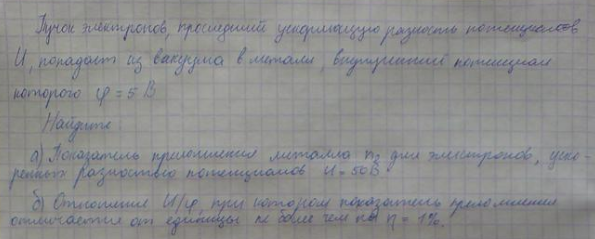 Пучок электронов, прошедший ускоряющую разность потенциалов
U, попадает из вакуума в металл, внутренний потенциал
которого φ = 5 В
Найдите:
а) Показатель преломления металла n₂ для электронов, уско-
ренных разностью потенциалов U = 50 В
б) Отношение U/φ при котором показатель преломления
отличается от единицы не более чем на η = 1%.